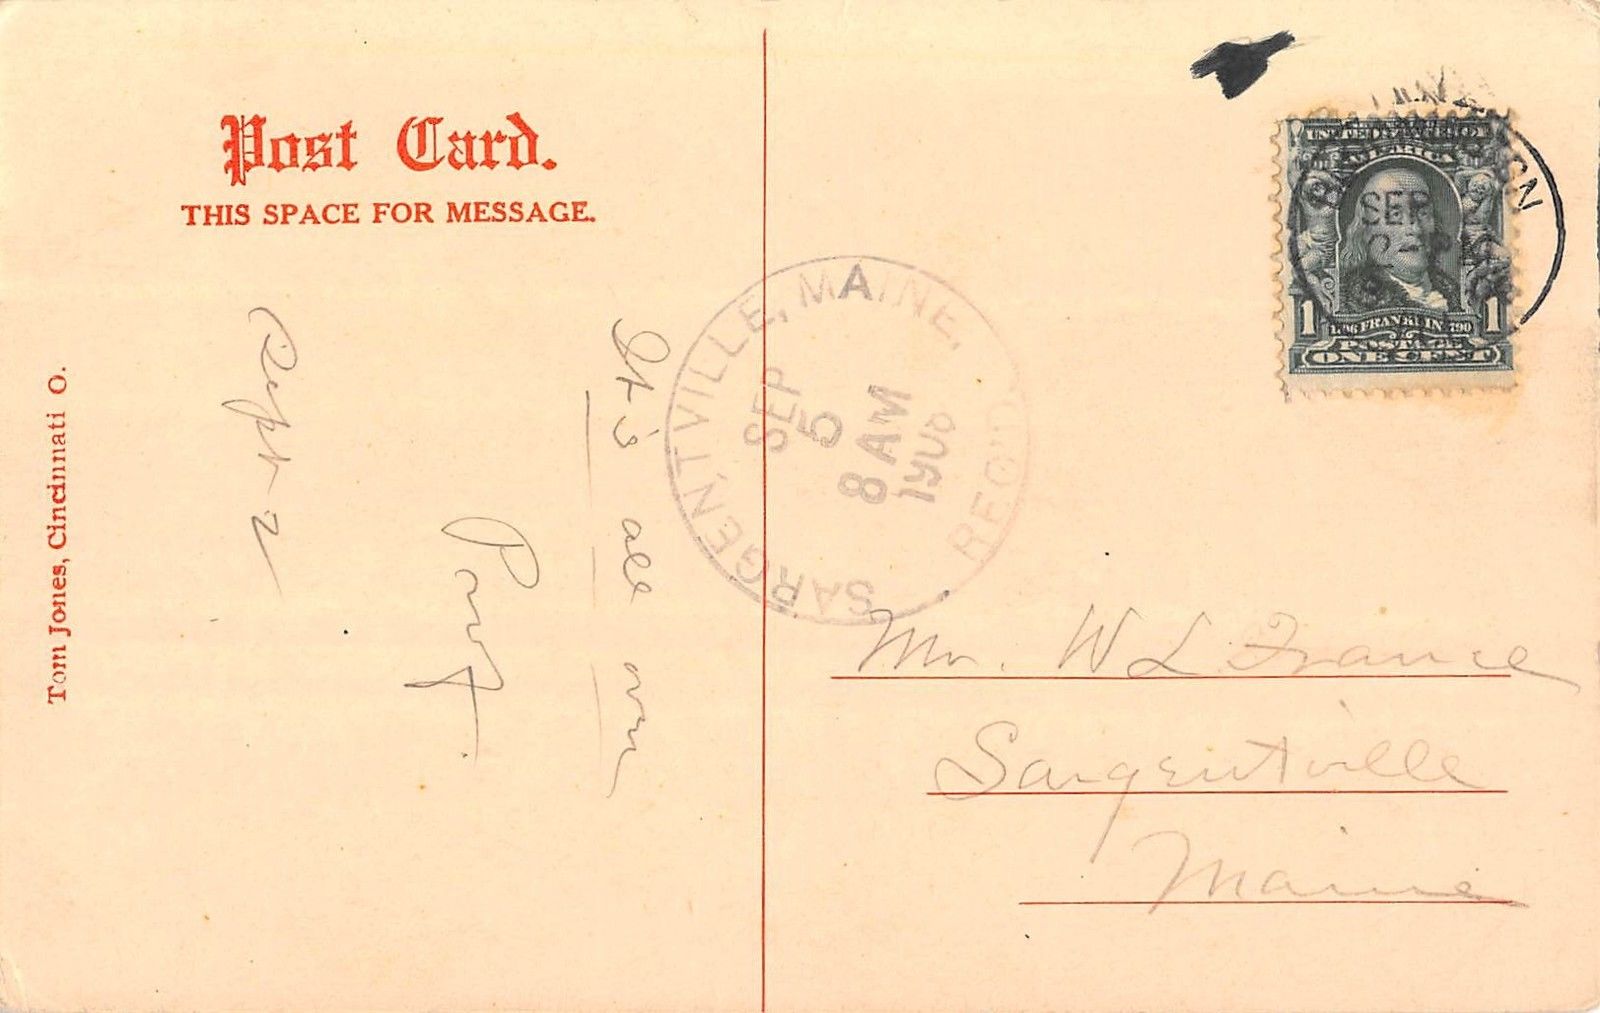 Post Card.
THIS SPACE FOR MESSAGE.
Sept 2
It is all over
Tom Jones, Cincinnati O.
SARGENTVILLE, MAINE,
SEP
5
8 AM
REC'D
UNITED STATES OF
AMERICA
SEP
1 FRANKLIN 1
POSTAGE
ONE CENT
Mr. W L France
Sargentville
Maine